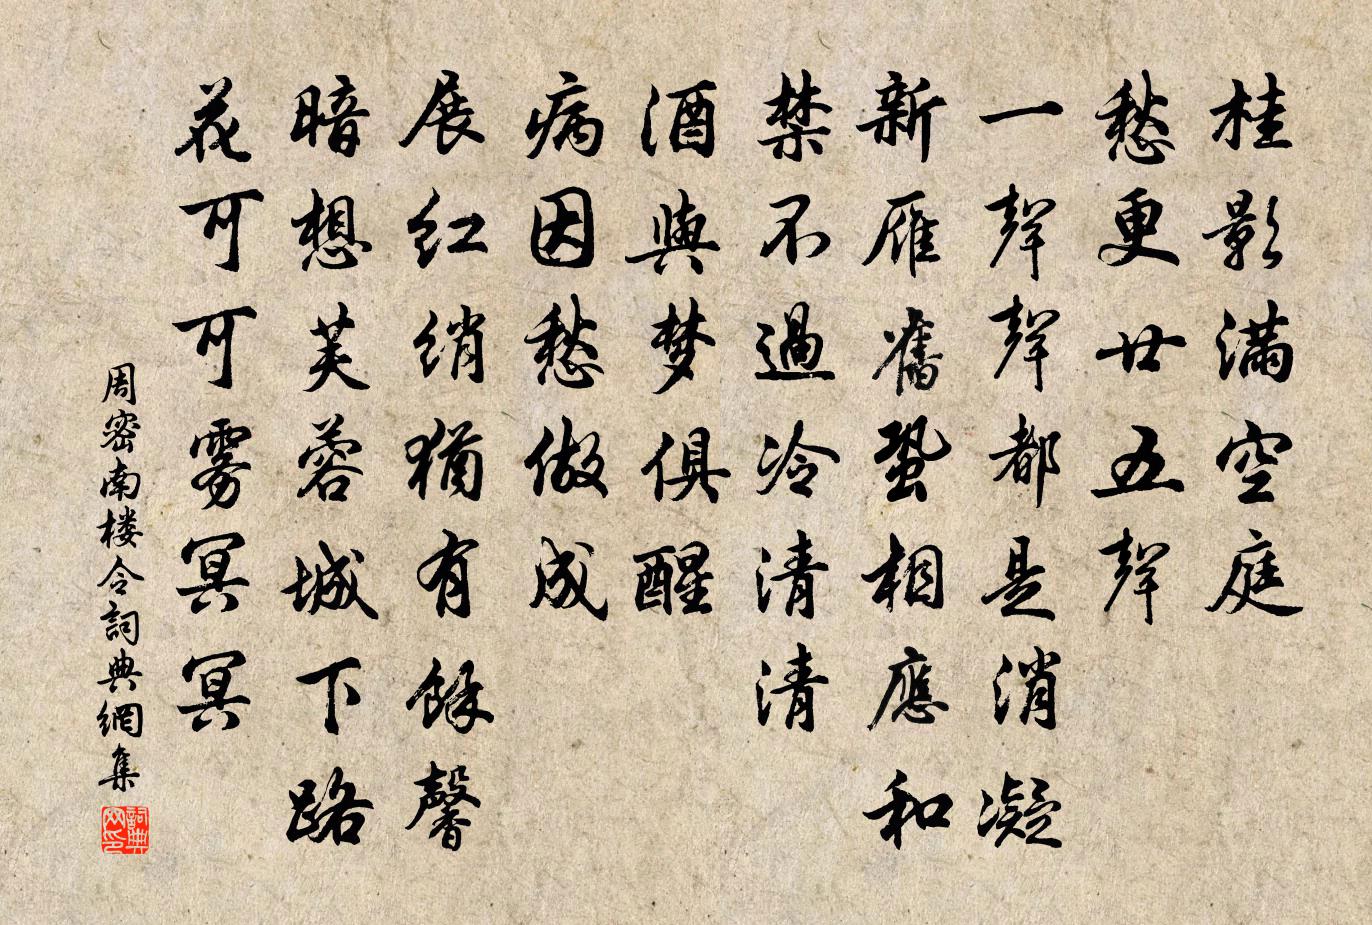 桂影滿空庭
愁更廿五聲
一聲聲都是消凝
新雁舊蛩相應和
禁不過冷清清
酒與梦俱醒
病因愁做成
展红绡猶有餘馨
暗想芙蓉城下路
花可可雾冥冥
周密南楼令詞典網集
詞典网印